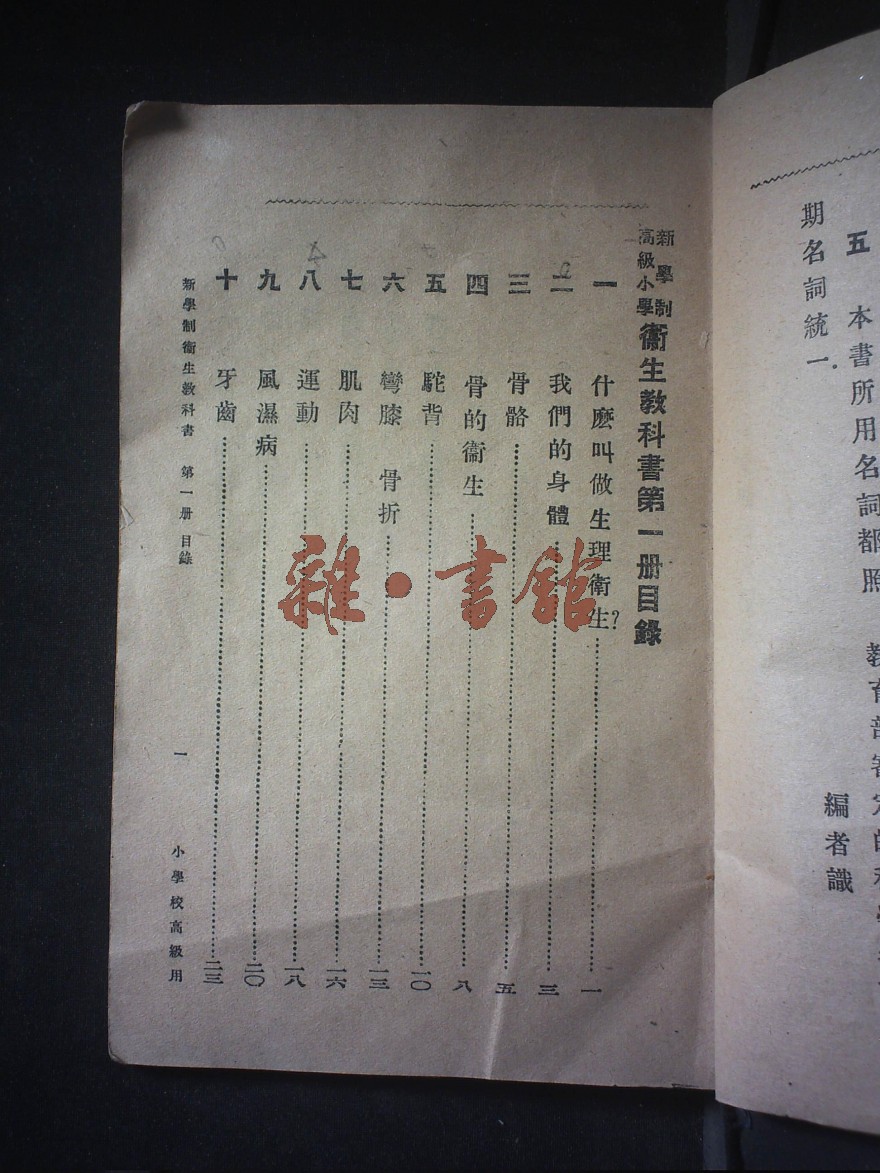 五　本書所用名詞都照　教育部審定的科學
期名詞統一．
編者識
新學制
高級小學
衞生教科書第一册目錄
一　什麽叫做生理衞生？……一
二　我們的身體……三
三　骨骼……五
四　骨的衞生……八
五　駝背……一〇
六　彎膝　骨折……一三
七　肌肉……一六
八　運動……一八
九　風濕病……二〇
十　牙齒……二三
新學制衞生教科書　第一册　目錄　一　小學校高級用
雜·書館